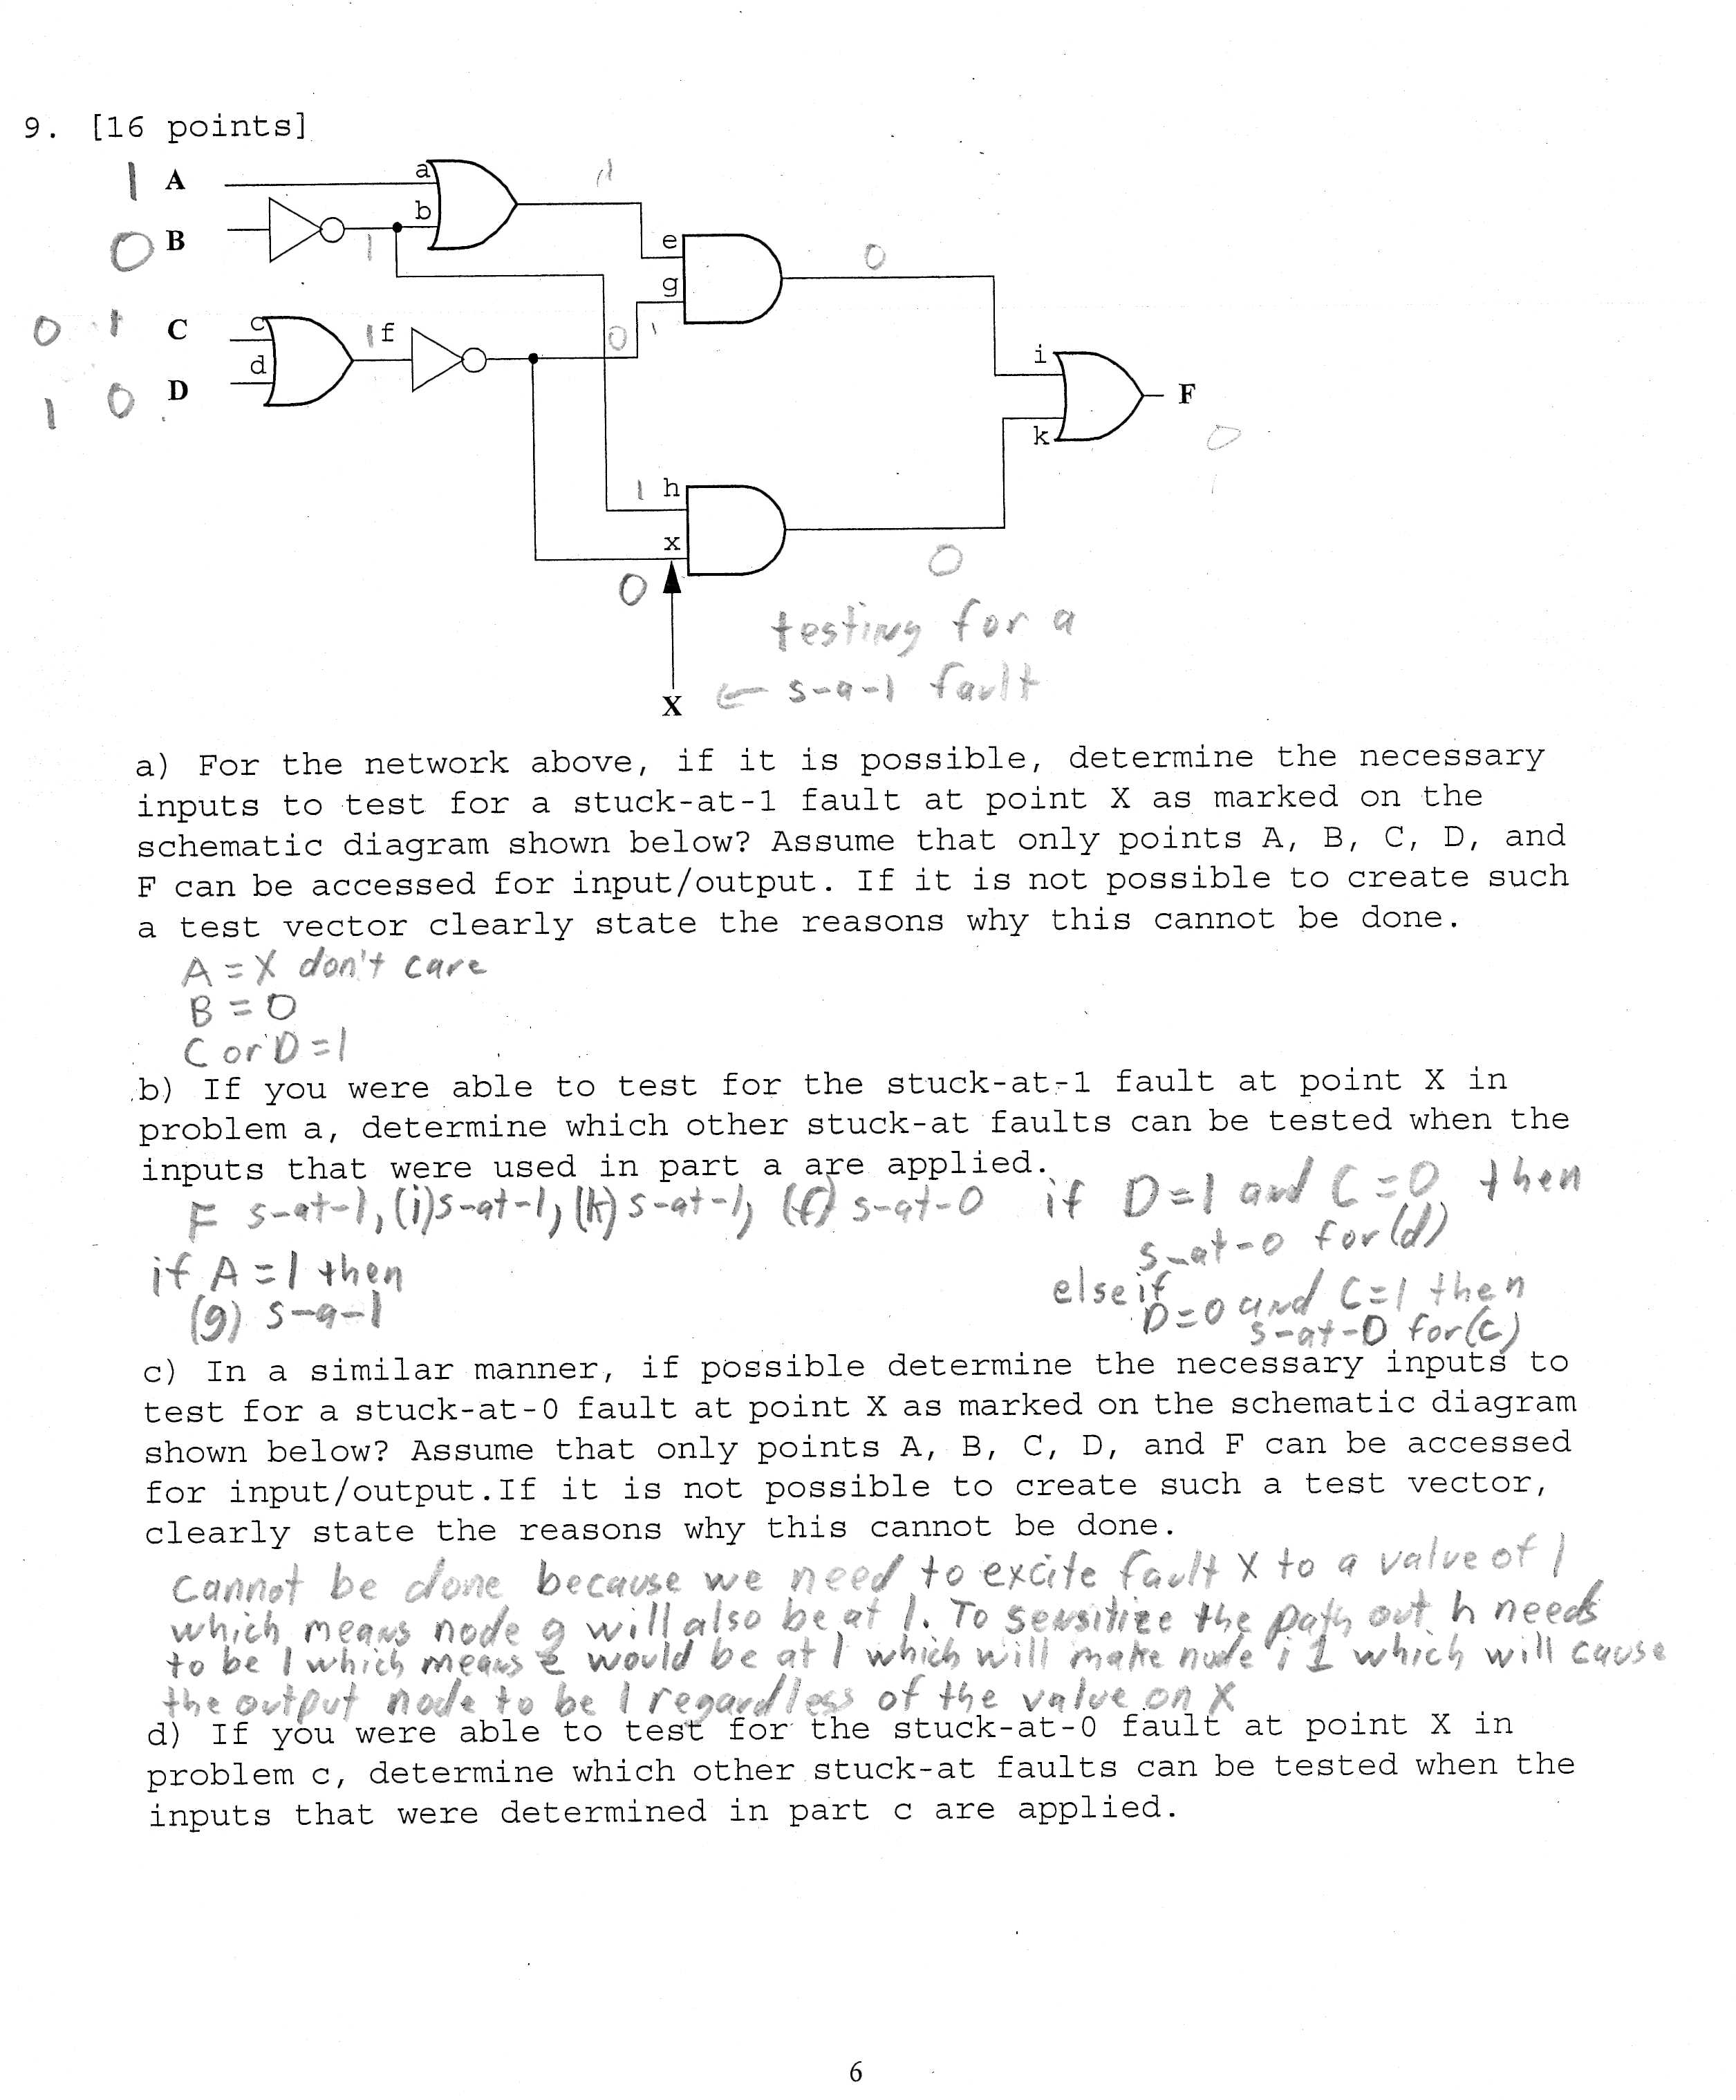 9. [16 points]
1 A
a
1
0 B
b
1
e
0
g
0 1 C
c
1 f
0 1
d
i
1 0 D
F
k
0
1 h
x
0
0
testing for a
← s-a-1 fault
X
a) For the network above, if it is possible, determine the necessary
inputs to test for a stuck-at-1 fault at point X as marked on the
schematic diagram shown below? Assume that only points A, B, C, D, and
F can be accessed for input/output. If it is not possible to create such
a test vector clearly state the reasons why this cannot be done.
A = X don't care
B = 0
C or D = 1
b) If you were able to test for the stuck-at-1 fault at point X in
problem a, determine which other stuck-at faults can be tested when the
inputs that were used in part a are applied.
F s-at-1, (i) s-at-1, (k) s-at-1, (f) s-at-0 if D=1 and C=0 then
s-at-0 for (d)
if A = 1 then
(g) s-a-1
else if
D=0 and C=1 then
s-at-0 for (c)
c) In a similar manner, if possible determine the necessary inputs to
test for a stuck-at-0 fault at point X as marked on the schematic diagram
shown below? Assume that only points A, B, C, D, and F can be accessed
for input/output.If it is not possible to create such a test vector,
clearly state the reasons why this cannot be done.
Cannot be done because we need to excite fault X to a value of 1
which means node g will also be at 1. To sensitize the path out h needs
to be 1 which means e would be at 1 which will make node i 1 which will cause
the output node to be 1 regardless of the value on X
d) If you were able to test for the stuck-at-0 fault at point X in
problem c, determine which other stuck-at faults can be tested when the
inputs that were determined in part c are applied.
6